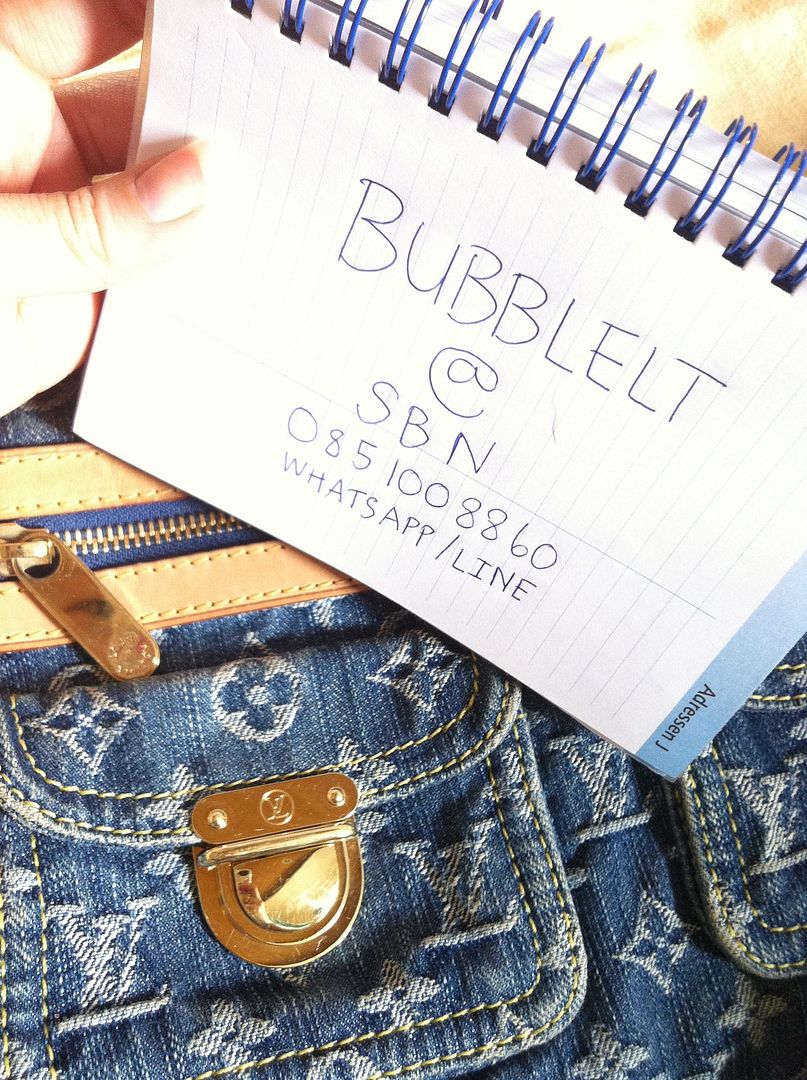 BUBBLELT
@
SBN
0851008860
WHATSAPP/LINE
Adressen J
LV